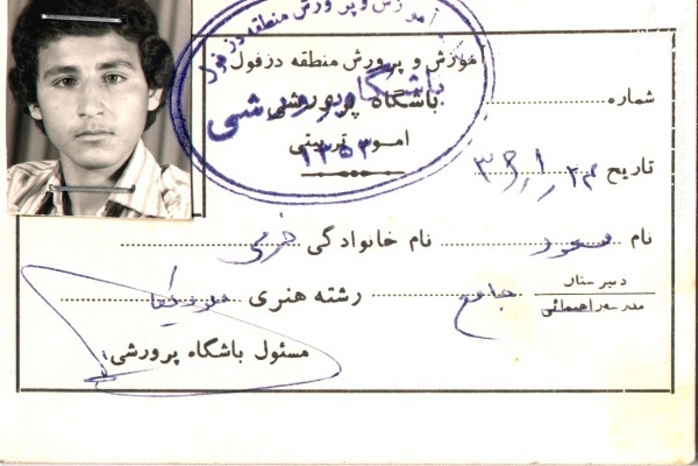 آموزش و پرورش منطقه دزفول
آموزش و پرورش منطقه دزفول
باشگاه پرورشی
امور تربیتی
۱۳۵۳
شماره
تاریخ
نام مسعود نام خانوادگی
دبیرستان
مدرسه راهنمائی جامع رشته هنری
مسئول باشگاه پرورشی: